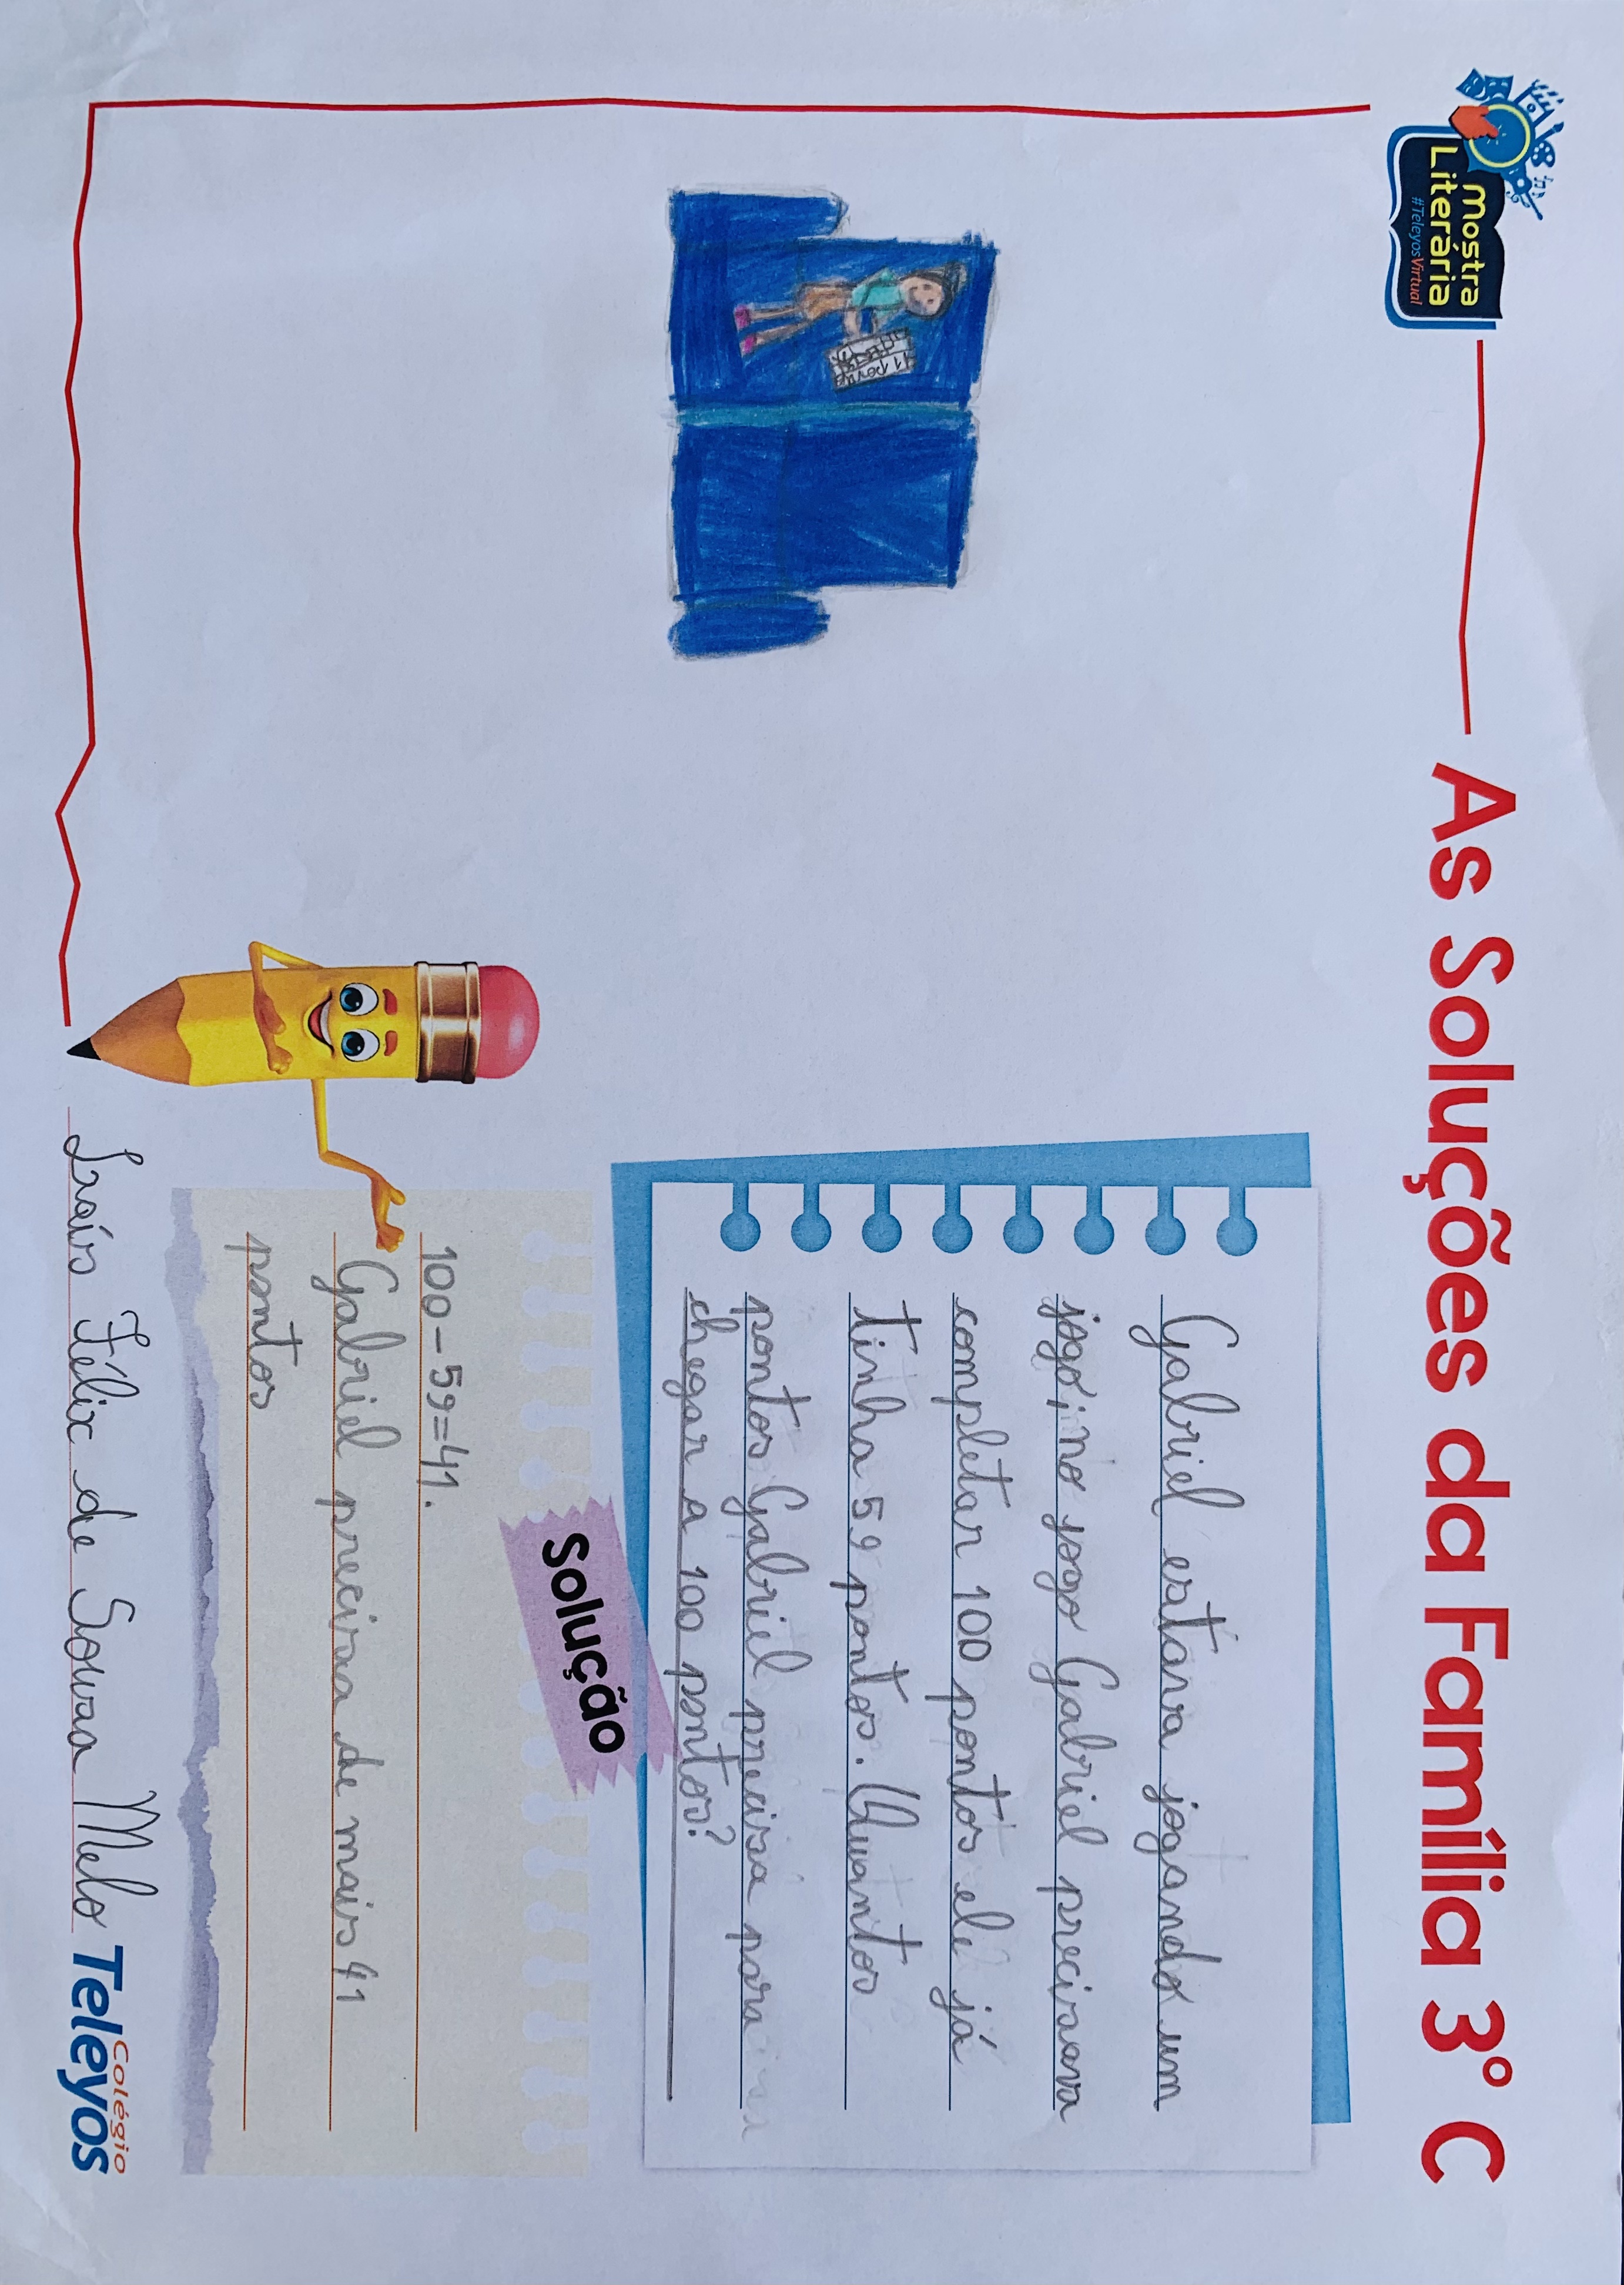 Mostra
Literária
#TeleyosVirtual
As Soluções da Família 3º C
Gabriel estava jogando um
jogo, no jogo Gabriel precisava
completar 100 pontos ele já
tinha 59 pontos. Quantos
pontos Gabriel precisa para
chegar a 100 pontos?
Solução
100-59=41.
Gabriel precisa de mais 41
pontos
Laís Félix de Sousa Melo
Colégio
Teleyos